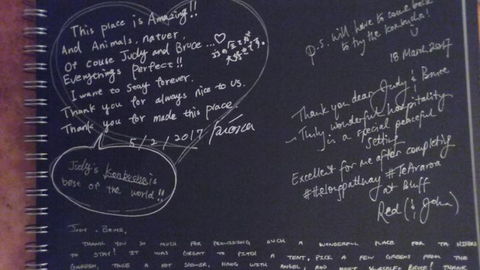 This place is Amazing!!
And Animals, natuer,
Of couse Judy and Bruce ...♡
Everythings Perfect!!
I want to stay forever.
Thank you for always nice to us.
Thank you for made this place
5/2/2017
Judy's Konbucha is
best of the world!!
P.S. will have to come back
to try the konbucha!
18 March 2017
Thank you dear Judy & Bruce
Truly wonderful hospitality
in a special peaceful
setting
Excellent for me after completing
#thelongpathway #TeAraroa
at Bluff
Red (& John)
JUDY + BRUCE,
THANK YOU SO MUCH FOR PROVIDING SUCH A WONDERFUL PLACE FOR TA HIKERS
TO STAY! IT WAS GREAT TO PITCH A TENT, PICK A FEW GREENS FROM THE
GARDEN, TAKE A HOT SHOWER, HANG WITH ANGEL, AND MEET YOURSELF BRUCE!